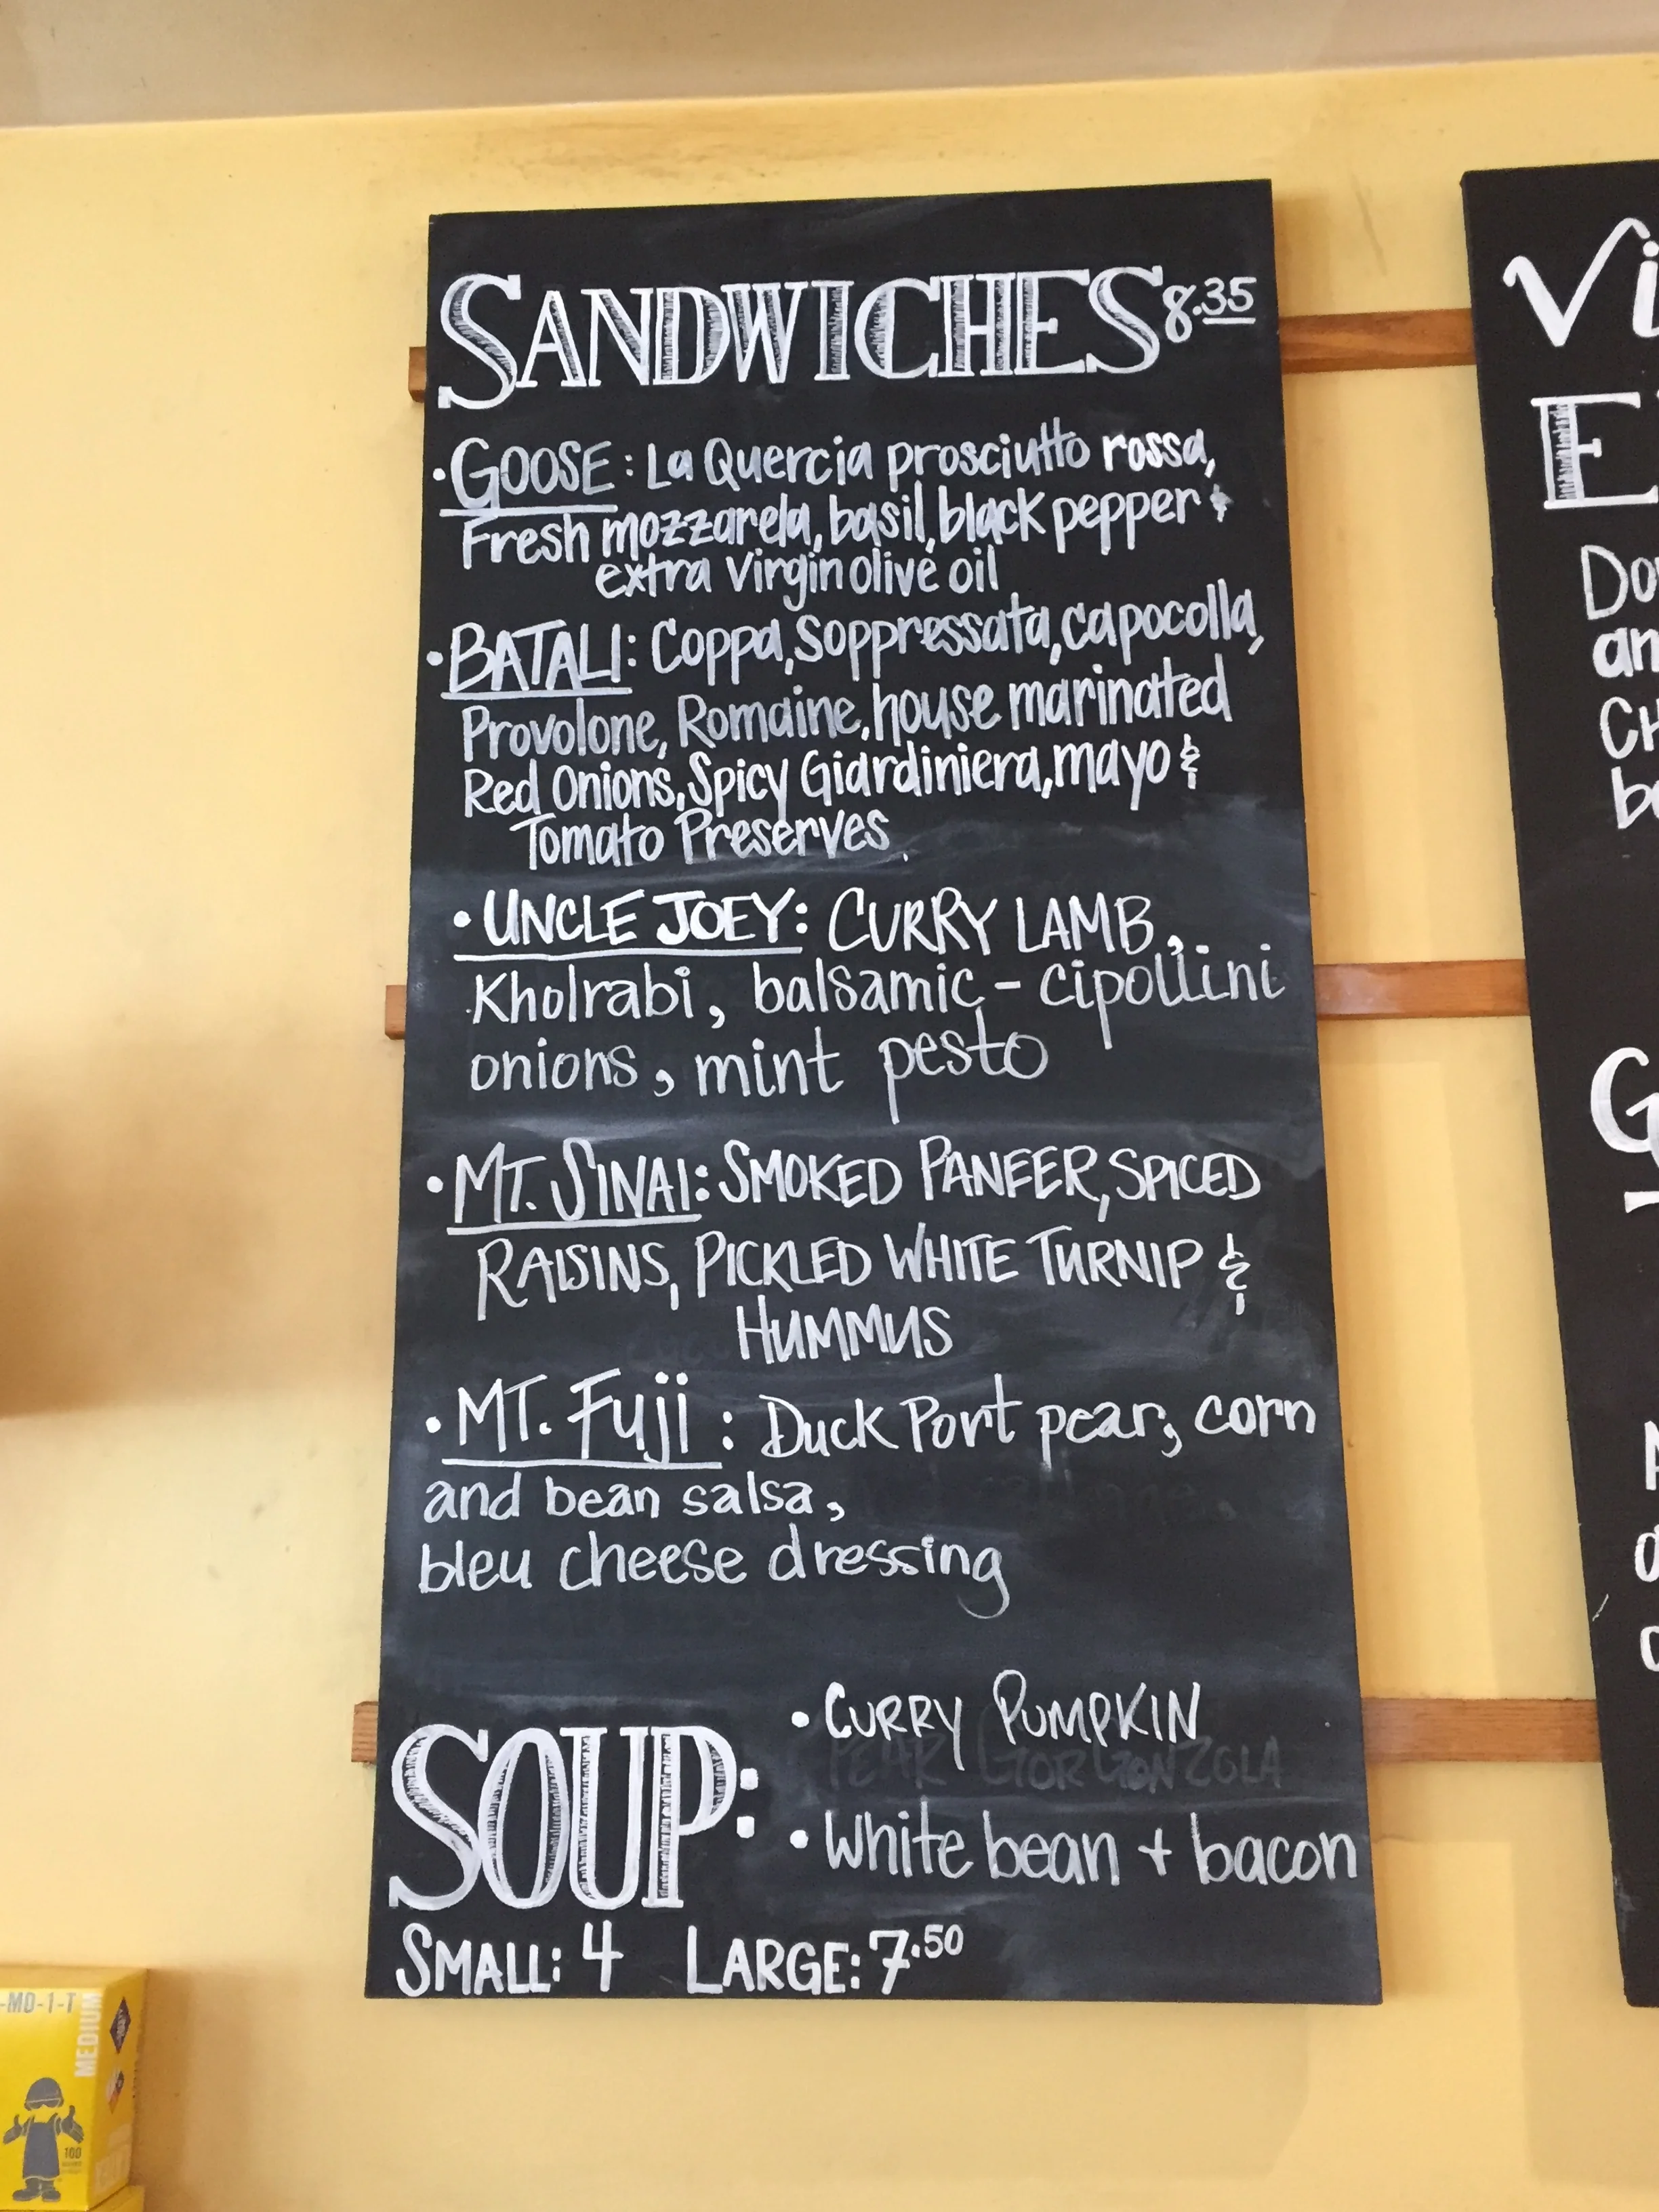 SANDWICHES 8.35
• GOOSE: La Quercia prosciutto rossa,
Fresh mozzarela, basil, black pepper &
extra virgin olive oil
• BATALI: Coppa, Soppressata, capocolla,
Provolone, Romaine, house marinated
Red Onions, Spicy Giardiniera, mayo &
Tomato Preserves.
• UNCLE JOEY: CURRY LAMB,
Kholrabi, balsamic - cipollini
onions, mint pesto
• MT. SINAI: SMOKED PANEER, SPICED
RAISINS, PICKLED WHITE TURNIP &
HUMMUS
• MT. Fuji: Duck Port pear, corn
and bean salsa,
bleu cheese dressing
SOUP:
• CURRY PUMPKIN
PEAR GORGONZOLA
• White bean + bacon
SMALL: 4 LARGE: 7.50
Vi
E
Do
an
CH
b
G
-MD-1-T
MEDIUM
100